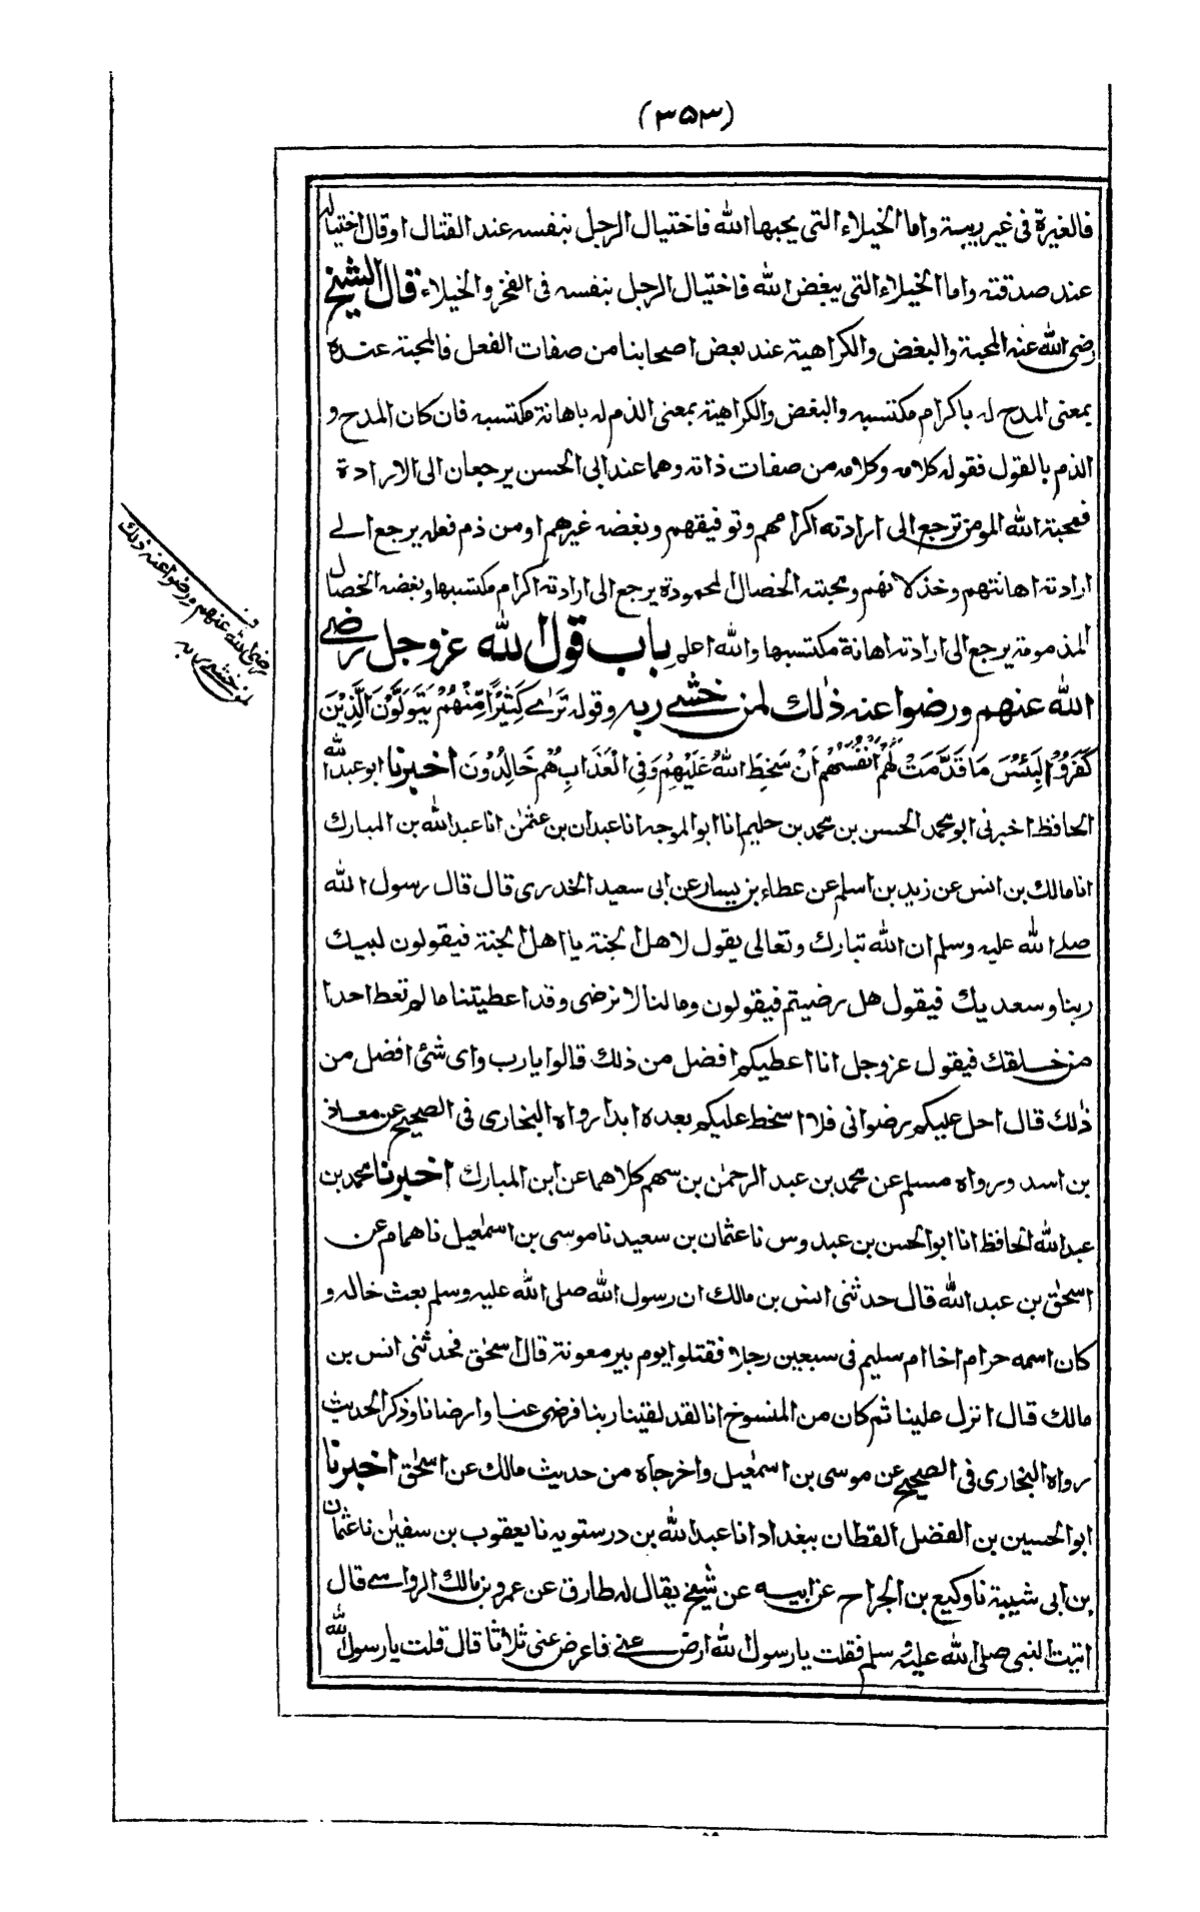 (٣٥٣)
فالغيرة فى غير ريبة واما الخيلاء التى يحبها الله فاختيال الرجل بنفسه عند القتال او قال اختياله
عند صدقته واما الخيلاء التى يبغض الله فاختيال الرجل بنفسه فى الفخر والخيلاء قال الشيخ
رضى الله عنه المحبة والبغض والكراهية عند بعض اصحابنا من صفات الفعل فالمحبة عنده
بمعنى المدح له باكرام مكتسبه والبغض والكراهية بمعنى الذم له باهانة مكتسبه فان كان المدح و
الذم بالقول فقوله كلامه وكلامه من صفات ذاته وهما عند ابى الحسن يرجعان الى الارادة
فمحبة الله المومن ترجع الى ارادته اكرامهم وتوفيقهم وبغضه غيرهم او من ذم فعله يرجع الے
ارادته اهانتهم وخذلانهم ومحبته الخصال المحمودة يرجع الى ارادته اكرام مكتسبها وبغضه الخصال
المذمومة يرجع الى ارادته اهانة مكتسبها والله اعلم باب قول الله عزوجل رضے
الله عنهم ورضوا عنه ذٰلك لمن خشے ربه وقوله تَرٰے كَثِيْرًا مِّنْهُمْ يَتَوَلَّوْنَ الَّذِيْنَ
كَفَرُوْا لَبِئْسَ مَا قَدَّمَتْ لَهُمْ اَنْفُسُهُمْ اَنْ سَخِطَ اللهُ عَلَيْهِمْ وَفِى الْعَذَابِ هُمْ خَالِدُوْنَ اخبرنا ابو عبدالله
الحافظ اخبرنى ابو محمد الحسن بن محمد بن حليم انا ابو الموجه انا عبدان بن عثمٰن انا عبدالله بن المبارك
انا مالك بن انس عن زيد بن اسلم عن عطاء بن يسار عن ابى سعيد الخدرى قال قال رسول الله
صلے الله عليه وسلم ان الله تبارك وتعالى يقول لاهل الجنة يا اهل الجنة فيقولون لبيك
ربنا وسعديك فيقول هل رضيتم فيقولون وما لنا لا نرضى وقد اعطيتنا ما لم تعط احدا
من خلقك فيقول عزوجل انا اعطيكم افضل من ذلك قالوا يا رب واى شئ افضل من
ذٰلك قال احل عليكم رضوانى فلا اسخط عليكم بعده ابدا رواه البخارى فى الصحيح عن معاذ
بن اسد ورواه مسلم عن محمد بن عبد الرحمٰن بن سهم كلاهما عن ابن المبارك اخبرنا محمد بن
عبدالله الحافظ انا ابو الحسن بن عبدوس نا عثمان بن سعيد نا موسى بن اسمٰعيل نا همام عن
اسحٰق بن عبد الله قال حدثنى انس بن مالك ان رسول الله صلى الله عليه وسلم بعث خاله و
كان اسمه حرام اخا ام سليم فى سبعين رجلا فقتلوا يوم بير معونة قال اسحٰق فحدثنى انس بن
مالك قال انزل علينا ثم كان من المنسوخ انا لقد لقينا ربنا فرضى عنا وارضانا وذكر الحديث
رواه البخارى فى الصحيح عن موسى بن اسمٰعيل واخرجاه من حديث مالك عن اسحٰق اخبرنا
ابو الحسين بن الفضل القطان ببغداد انا عبدالله بن درستويه نا يعقوب بن سفيٰن نا عثمان
بن ابى شيبة نا وكيع بن الجراح عن ابيه عن شيخ يقال له طارق عن عمرو بن مالك الرواسے قال
اتيت النبى صلى الله عليه وسلم فقلت يا رسول الله ارض عنے فاعرض عنى ثلاثا قال قلت يا رسول الله
رضى الله عنهم ورضوا عنه ذلك
لمن خشى ربه